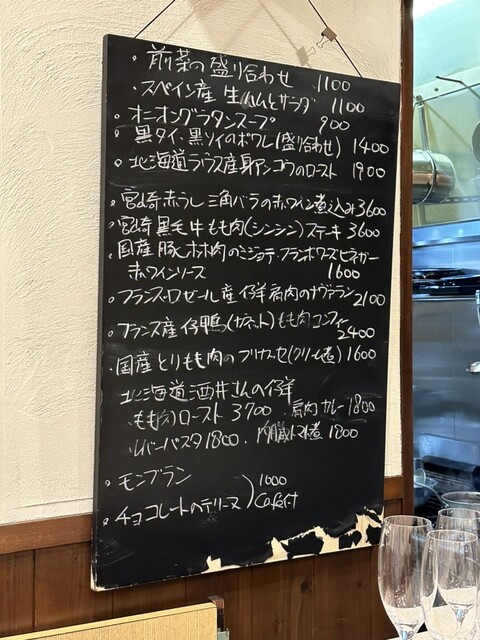 ・前菜の盛り合わせ 1100
・スペイン産 生ハムとサラダ 1100
・オニオングラタンスープ 900
・黒タイ・黒ソイのポワレ(盛り合わせ) 1400
・北海道ラウス産身アンコウのロースト 1900
・宮崎赤うし三角バラの赤ワイン煮込み 3600
・宮崎黒毛牛もも肉(シンシン)ステーキ 3600
・国産豚ホホ肉のミジョテ・フランボワーズビネガー
赤ワインソース 1600
・フランス・ロゼール産仔羊肩肉のナヴァラン 2100
・フランス産仔鴨(カネット)もも肉コンフィー
2400
・国産とりもも肉のブリカッセ(クリーム煮) 1600
北海道酒井さんの仔羊
・もも肉ロースト 3700 ・肩肉カレー 1800
・レバーパスタ 1800 ・内臓トマト煮 1800
・モンブラン
・チョコレートのテリーヌ
)1000
Cafe付